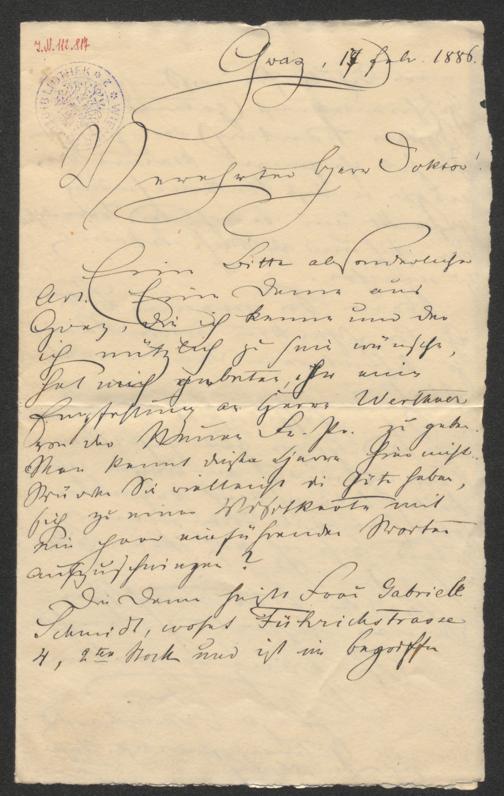 I.N. 112.817
BIBLIOTHEK
Graz, 17 Febr. 1886.
Verehrter Herr Doktor!
Eine Bitte absonderlicher
Art. Eine Dame aus
Graz, die ich kenne und der
ich nützlich zu sein wünsche,
hat mich gebeten, ihr eine
Empfehlung an Herrn Werthner
von der Neuen Fr. Pr. zu geben.
Man kennt diesen Herrn hier nicht.
Würden Sie vielleicht die Güte haben,
sich zu einer Visitkarte mit
ein paar einführenden Worten
aufzuschwingen?
Die Dame heißt Frau Gabriele
Schmidt, wohnt Führichstrasse
4, 2ten Stock und ist im begriffe